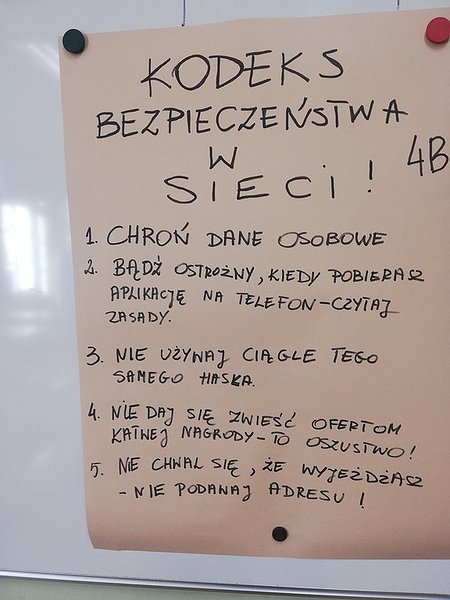 KODEKS
BEZPIECZEŃSTWA
W 4B
SIECI!
1. CHROŃ DANE OSOBOWE
2. BĄDŹ OSTROŻNY, KIEDY POBIERASZ
APLIKACJĘ NA TELEFON-CZYTAJ
ZASADY.
3. NIE UŻYWAJ CIĄGLE TEGO
SAMEGO HASŁA.
4. NIE DAJ SIĘ ZWIEŚĆ OFERTOM
ŁATNEJ NAGRODY-TO OSZUSTWO!
5. NIE CHWAL SIĘ, ŻE WYJEŻDŻASZ
- NIE PODAWAJ ADRESU!